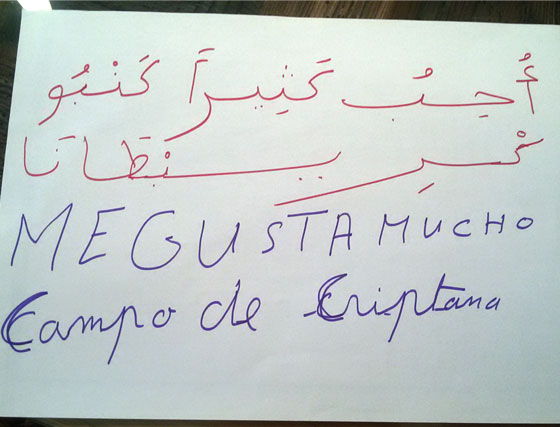 أُحِبُ كَثِيراً كَنْبُو
ME GUSTA MUCHO
Campo de Criptana